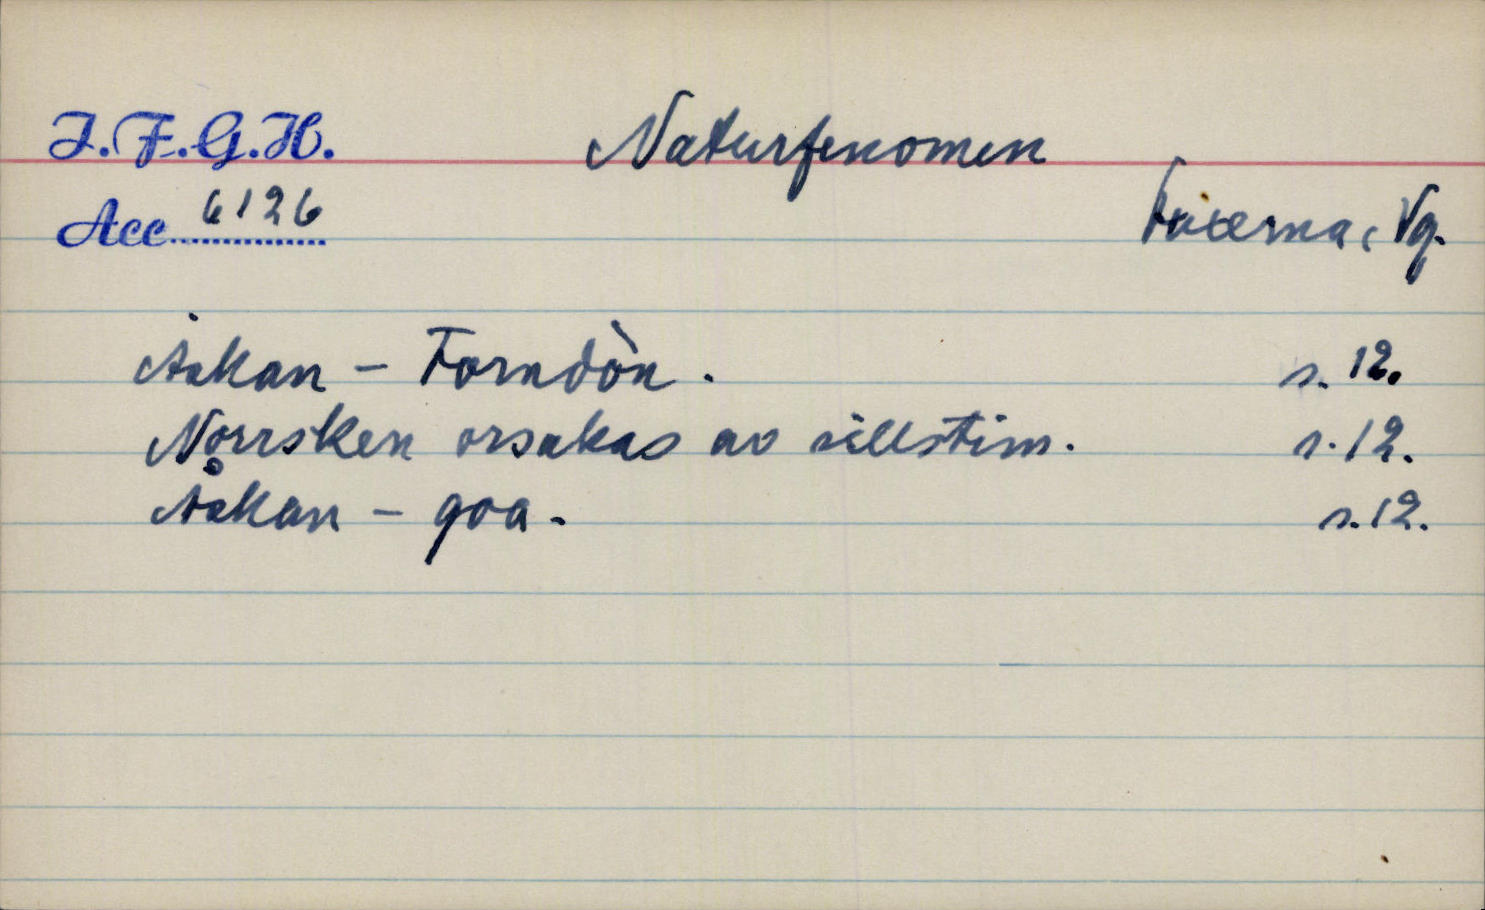 I.F.G.H.
Naturfenomen
Acc 6126
Vg.
Åskan – Torndön. s. 12.
Norrsken orsakas av sillstim. s. 12.
Åskan – goa. s. 12.